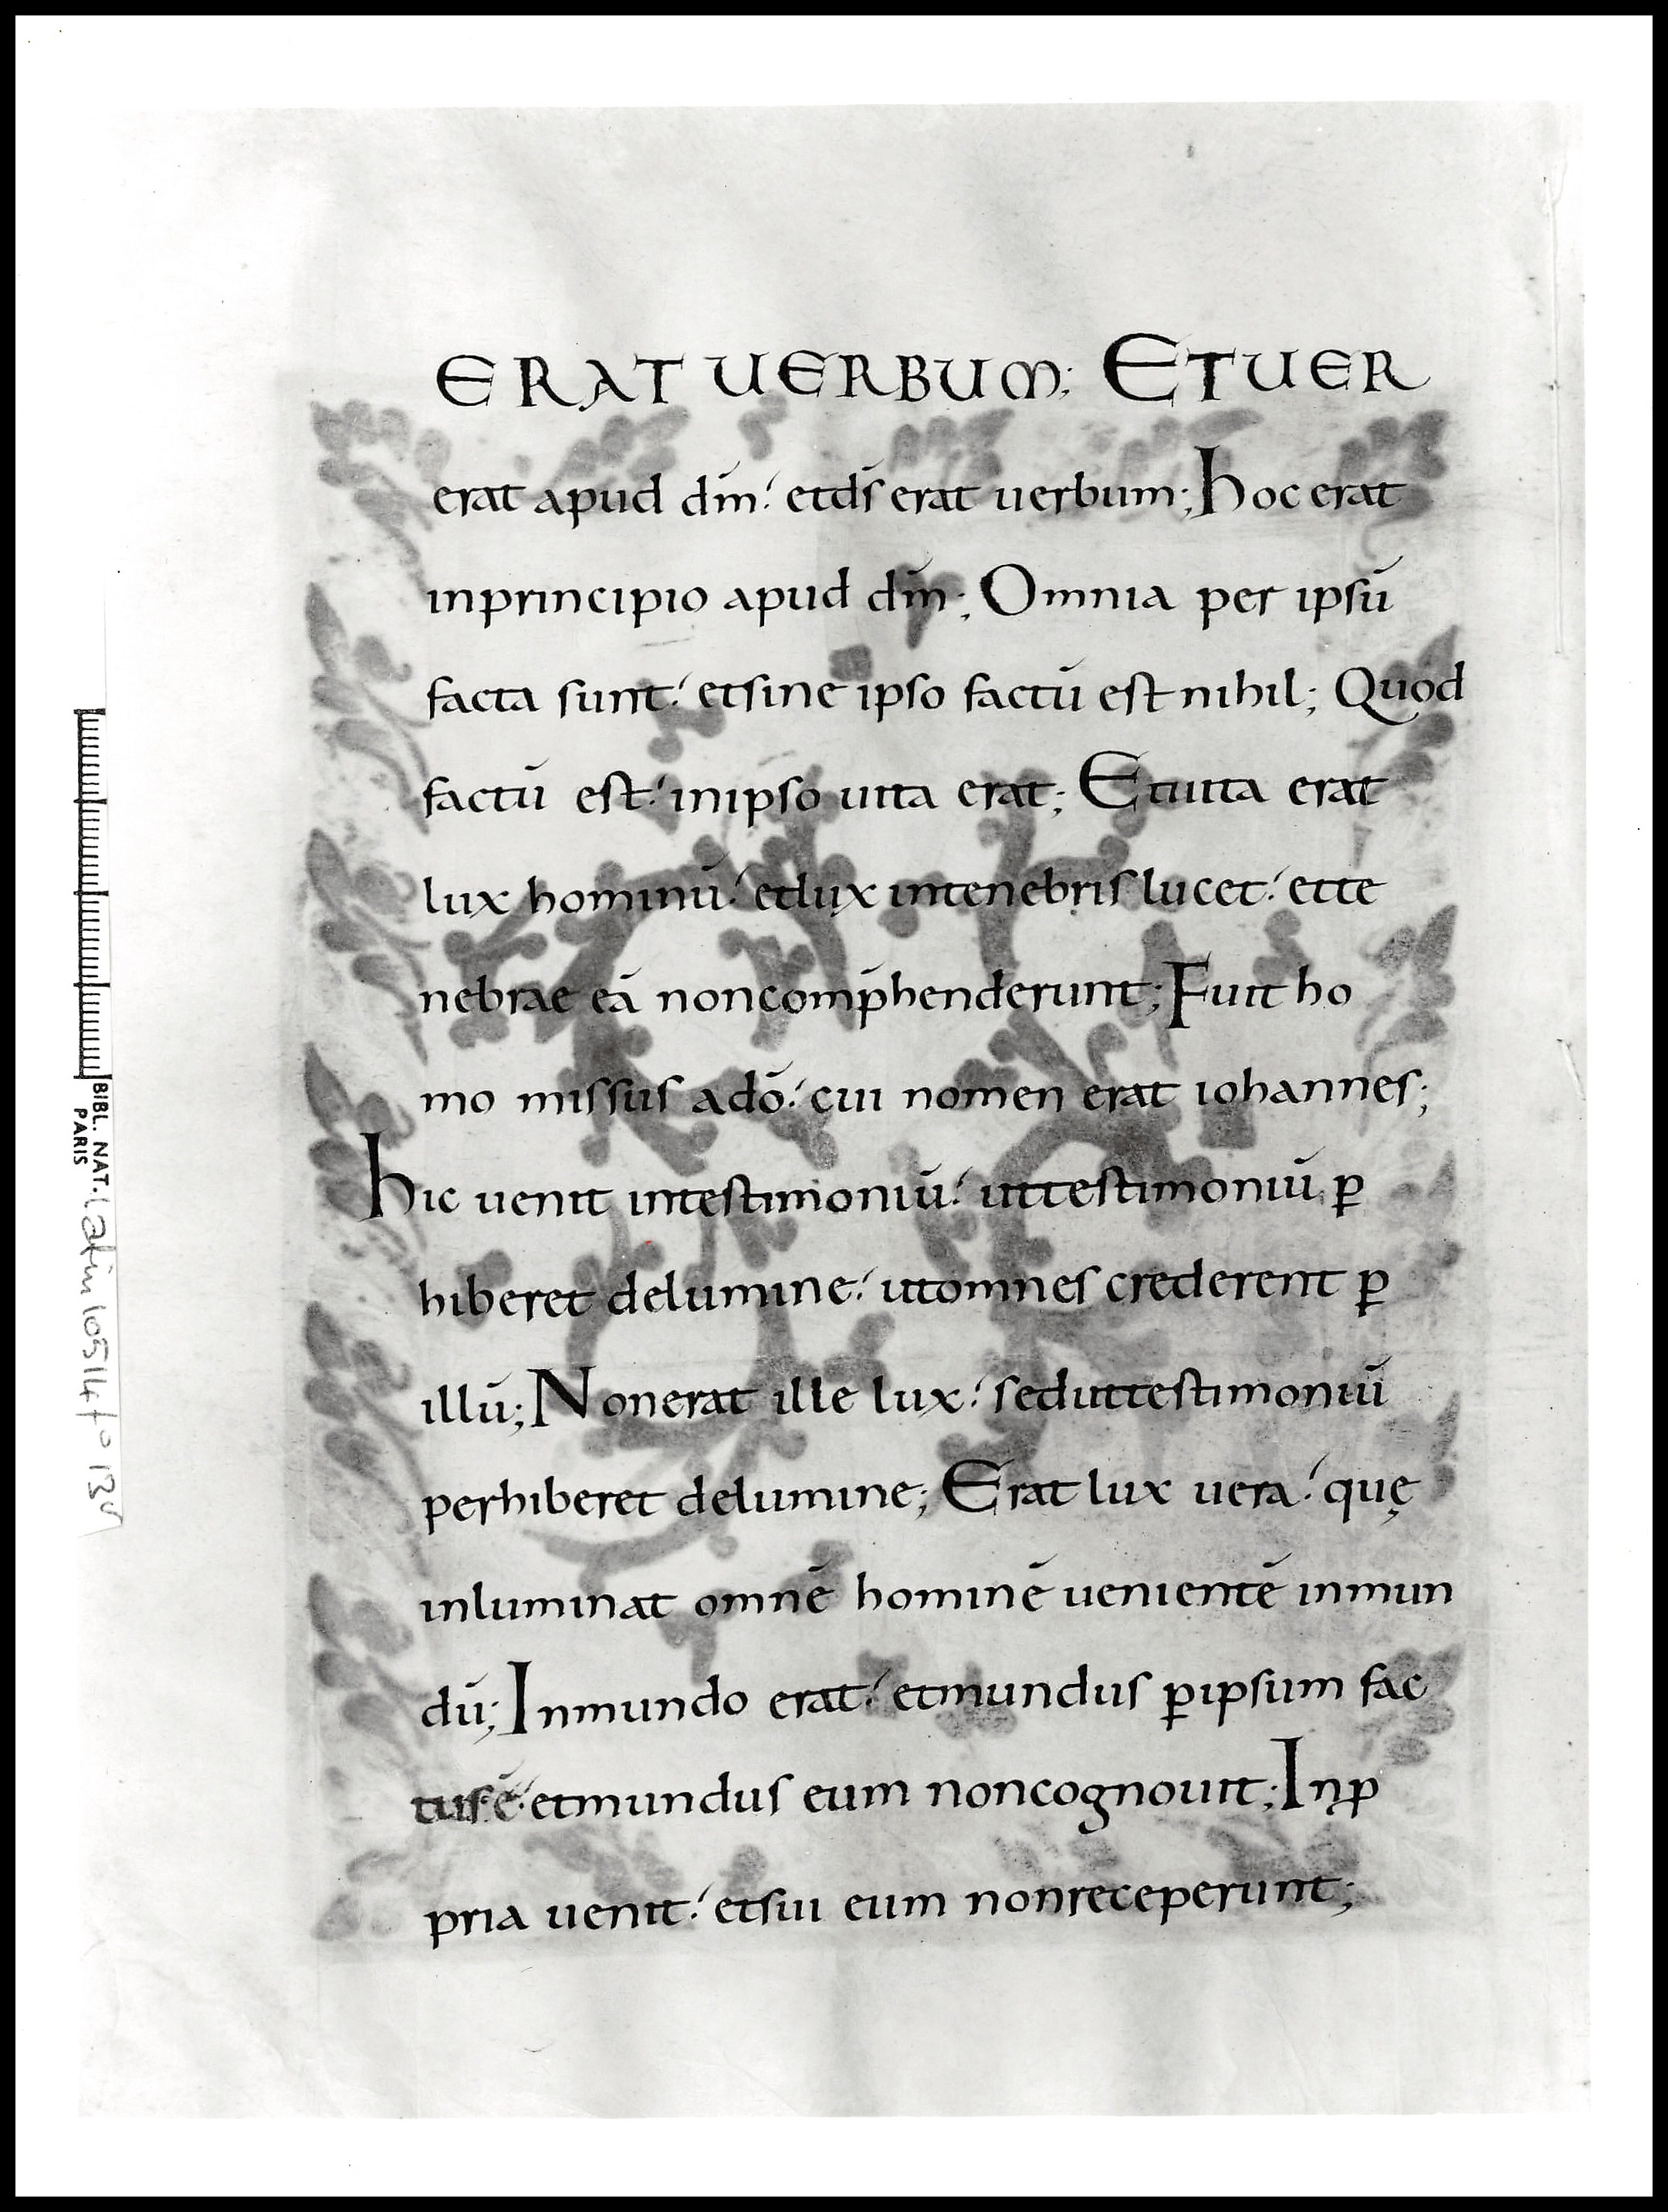 ERAT UERBUM; ET UER
erat apud dm̄ etds̄ erat uerbum; Hoc erat
inprincipio apud dm̄; Omnia per ipsū
facta sunt etsine ipso factū est nihil; Quod
factū est inipso uita erat; Etuita erat
lux hominū etlux intenebris lucet ette
nebrae eā noncomp̄henderunt; Fuit ho
mo missus adō cui nomen erat iohannes;
Hic uenit intestimoniū uttestimoniū ꝑ
hiberet delumine utomnes crederent ꝑ
illū; Nonerat ille lux seduttestimoniū
perhiberet delumine; Erat lux uera quę
inluminat omnē hominē uenientē inmun
dū; Inmundo erat etmundus ꝑipsum fac
tus ē etmundus eum noncognouit; Inꝓ
pria uenit etsui eum nonreceperunt;
BIBL. NAT.
PARIS
Latin 10514 fo 13v